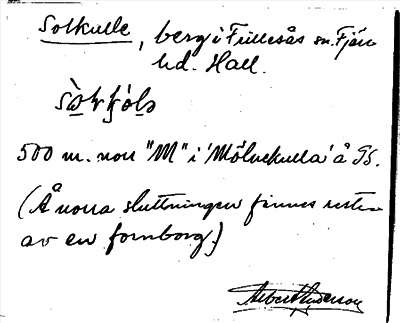 Solkulle, berg i Frillesås sn. Fjäre
hd. Hall.
500 m. norr "M" i Mölnekulla å GS.
(Å norra sluttningen finnes rester
av en fornborg.)
Albert Anderson